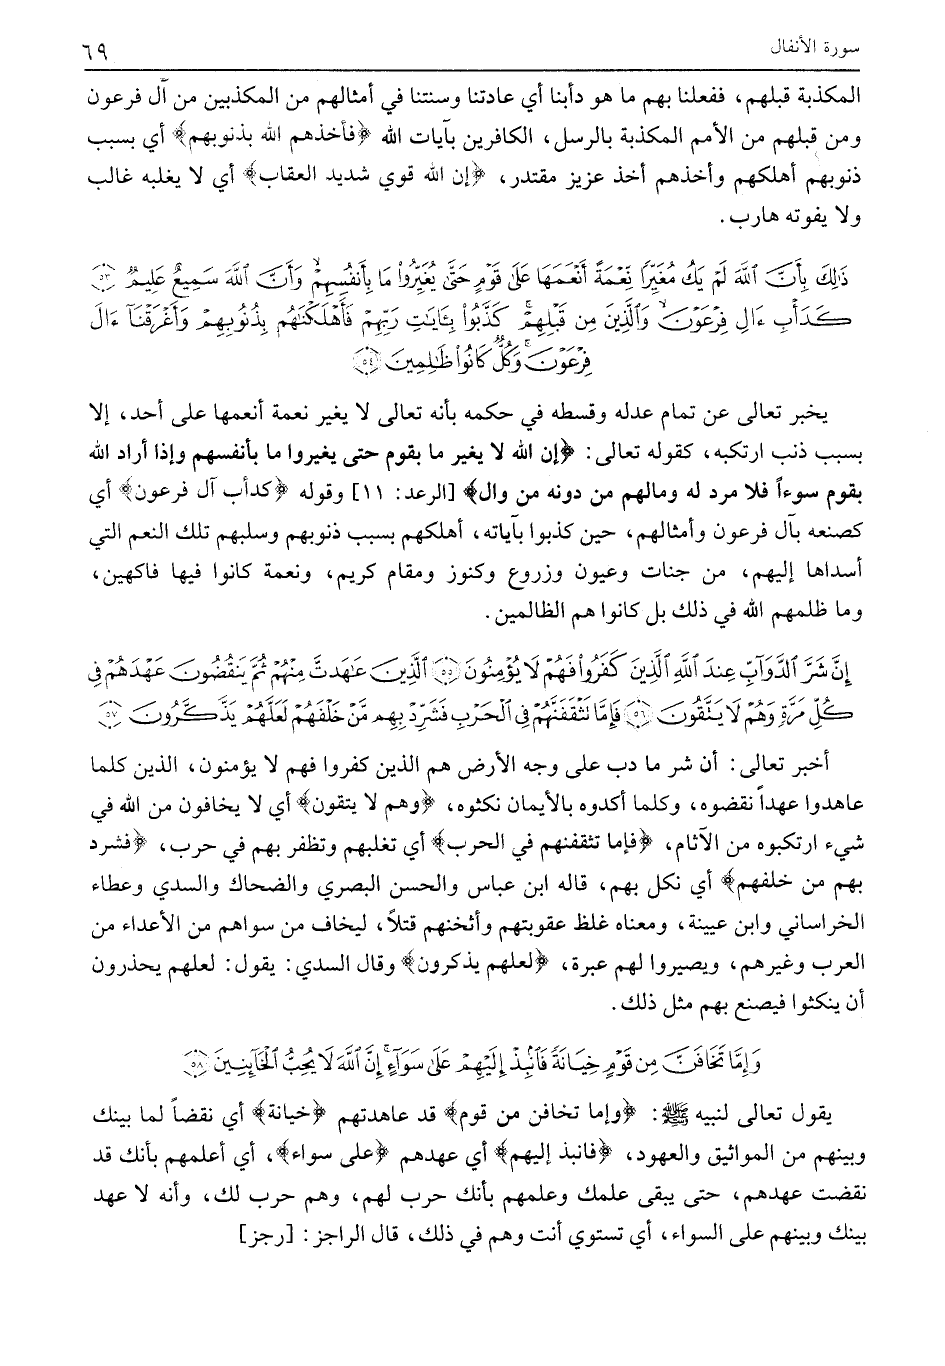 سورة الأنفال ٦٩
المكذبة قبلهم، ففعلنا بهم ما هو دأبنا أي عادتنا وسنتنا في أمثالهم من المكذبين من آل فرعون
ومن قبلهم من الأمم المكذبة بالرسل، الكافرين بآيات الله ﴿فأخذهم الله بذنوبهم﴾ أي بسبب
ذنوبهم أهلكهم وأخذهم أخذ عزيز مقتدر، ﴿إن الله قوي شديد العقاب﴾ أي لا يغلبه غالب
ولا يفوته هارب.
ذَٰلِكَ بِأَنَّ ٱللَّهَ لَمْ يَكُ مُغَيِّرًا نِّعْمَةً أَنْعَمَهَا عَلَىٰ قَوْمٍ حَتَّىٰ يُغَيِّرُوا۟ مَا بِأَنفُسِهِمْ ۙ وَأَنَّ ٱللَّهَ سَمِيعٌ عَلِيمٌ ﴿٥٣﴾
كَدَأْبِ ءَالِ فِرْعَوْنَ ۙ وَٱلَّذِينَ مِن قَبْلِهِمْ ۚ كَذَّبُوا۟ بِـَٔايَـٰتِ رَبِّهِمْ فَأَهْلَكْنَـٰهُم بِذُنُوبِهِمْ وَأَغْرَقْنَآ ءَالَ
فِرْعَوْنَ ۚ وَكُلٌّ كَانُوا۟ ظَـٰلِمِينَ ﴿٥٤﴾
يخبر تعالى عن تمام عدله وقسطه في حكمه بأنه تعالى لا يغير نعمة أنعمها على أحد، إلا
بسبب ذنب ارتكبه، كقوله تعالى: ﴿إن الله لا يغير ما بقوم حتى يغيروا ما بأنفسهم وإذا أراد الله
بقوم سوءاً فلا مرد له ومالهم من دونه من وال﴾ [الرعد: ١١] وقوله ﴿كدأب آل فرعون﴾ أي
كصنعه بآل فرعون وأمثالهم، حين كذبوا بآياته، أهلكهم بسبب ذنوبهم وسلبهم تلك النعم التي
أسداها إليهم، من جنات وعيون وزروع وكنوز ومقام كريم، ونعمة كانوا فيها فاكهين،
وما ظلمهم الله في ذلك بل كانوا هم الظالمين.
إِنَّ شَرَّ ٱلدَّوَآبِّ عِندَ ٱللَّهِ ٱلَّذِينَ كَفَرُوا۟ فَهُمْ لَا يُؤْمِنُونَ ﴿٥٥﴾ ٱلَّذِينَ عَـٰهَدتَّ مِنْهُمْ ثُمَّ يَنقُضُونَ عَهْدَهُمْ فِى
كُلِّ مَرَّةٍ وَهُمْ لَا يَتَّقُونَ ﴿٥٦﴾ فَإِمَّا تَثْقَفَنَّهُمْ فِى ٱلْحَرْبِ فَشَرِّدْ بِهِم مَّنْ خَلْفَهُمْ لَعَلَّهُمْ يَذَّكَّرُونَ ﴿٥٧﴾
أخبر تعالى: أن شر ما دب على وجه الأرض هم الذين كفروا فهم لا يؤمنون، الذين كلما
عاهدوا عهداً نقضوه، وكلما أكدوه بالأيمان نكثوه، ﴿وهم لا يتقون﴾ أي لا يخافون من الله في
شيء ارتكبوه من الآثام، ﴿فإما تثقفنهم في الحرب﴾ أي تغلبهم وتظفر بهم في حرب، ﴿فشرد
بهم من خلفهم﴾ أي نكل بهم، قاله ابن عباس والحسن البصري والضحاك والسدي وعطاء
الخراساني وابن عيينة، ومعناه غلظ عقوبتهم وأثخنهم قتلاً، ليخاف من سواهم من الأعداء من
العرب وغيرهم، ويصيروا لهم عبرة، ﴿لعلهم يذكرون﴾ وقال السدي: يقول: لعلهم يحذرون
أن ينكثوا فيصنع بهم مثل ذلك.
وَإِمَّا تَخَافَنَّ مِن قَوْمٍ خِيَانَةً فَٱنۢبِذْ إِلَيْهِمْ عَلَىٰ سَوَآءٍ ۚ إِنَّ ٱللَّهَ لَا يُحِبُّ ٱلْخَآئِنِينَ ﴿٥٨﴾
يقول تعالى لنبيه ﷺ: ﴿وإما تخافن من قوم﴾ قد عاهدتهم ﴿خيانة﴾ أي نقضاً لما بينك
وبينهم من المواثيق والعهود، ﴿فانبذ إليهم﴾ أي عهدهم ﴿على سواء﴾، أي أعلمهم بأنك قد
نقضت عهدهم، حتى يبقى علمك وعلمهم بأنك حرب لهم، وهم حرب لك، وأنه لا عهد
بينك وبينهم على السواء، أي تستوي أنت وهم في ذلك، قال الراجز: [رجز]